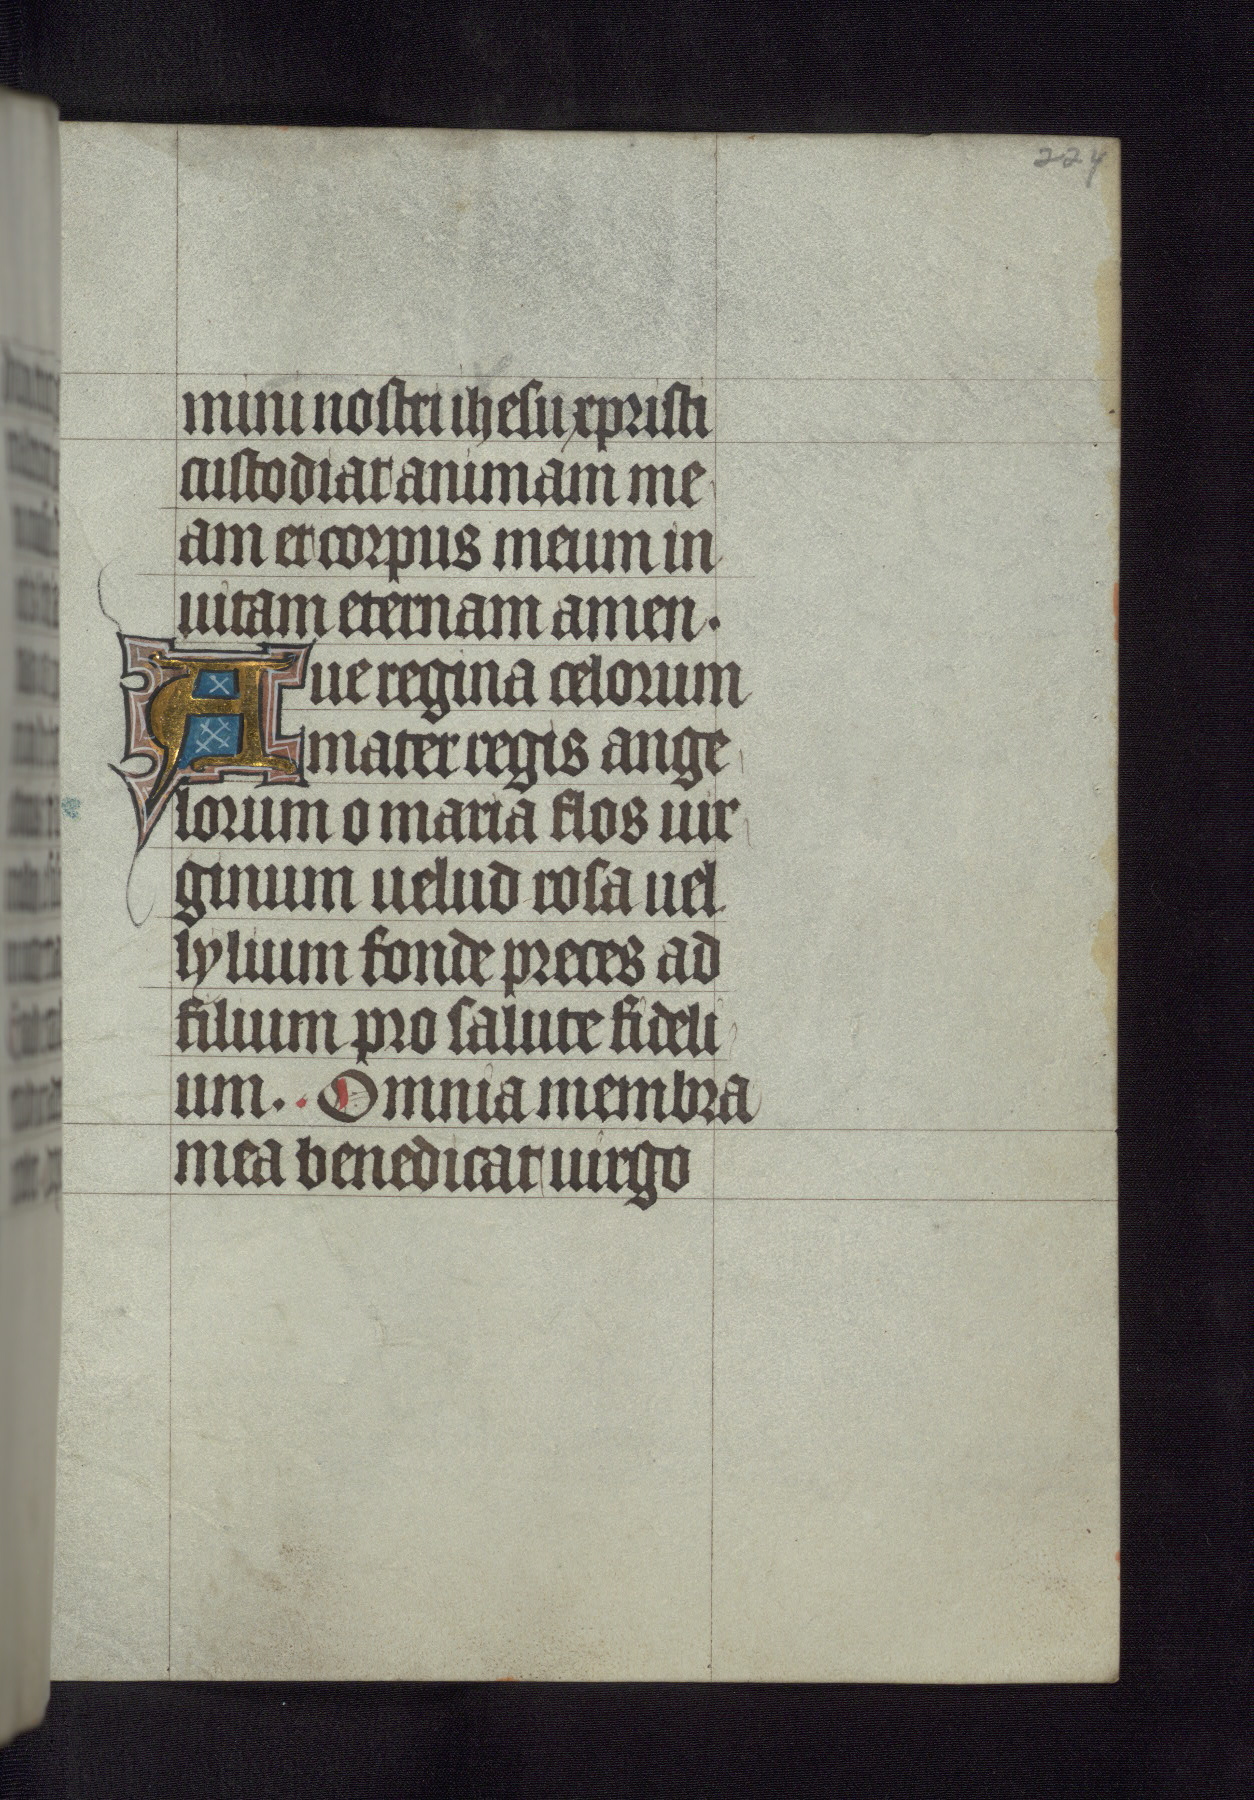 224
mini nostri ihesu xpristi
custodiat animam me
am et corpus meum in
uitam eternam amen.
Aue regina celorum
mater regis ange
lorum o maria flos uir
ginum uelud rosa uel
lylium fonde preces ad
filium pro salute fideli
um. . Omnia membra
mea benedicat uirgo